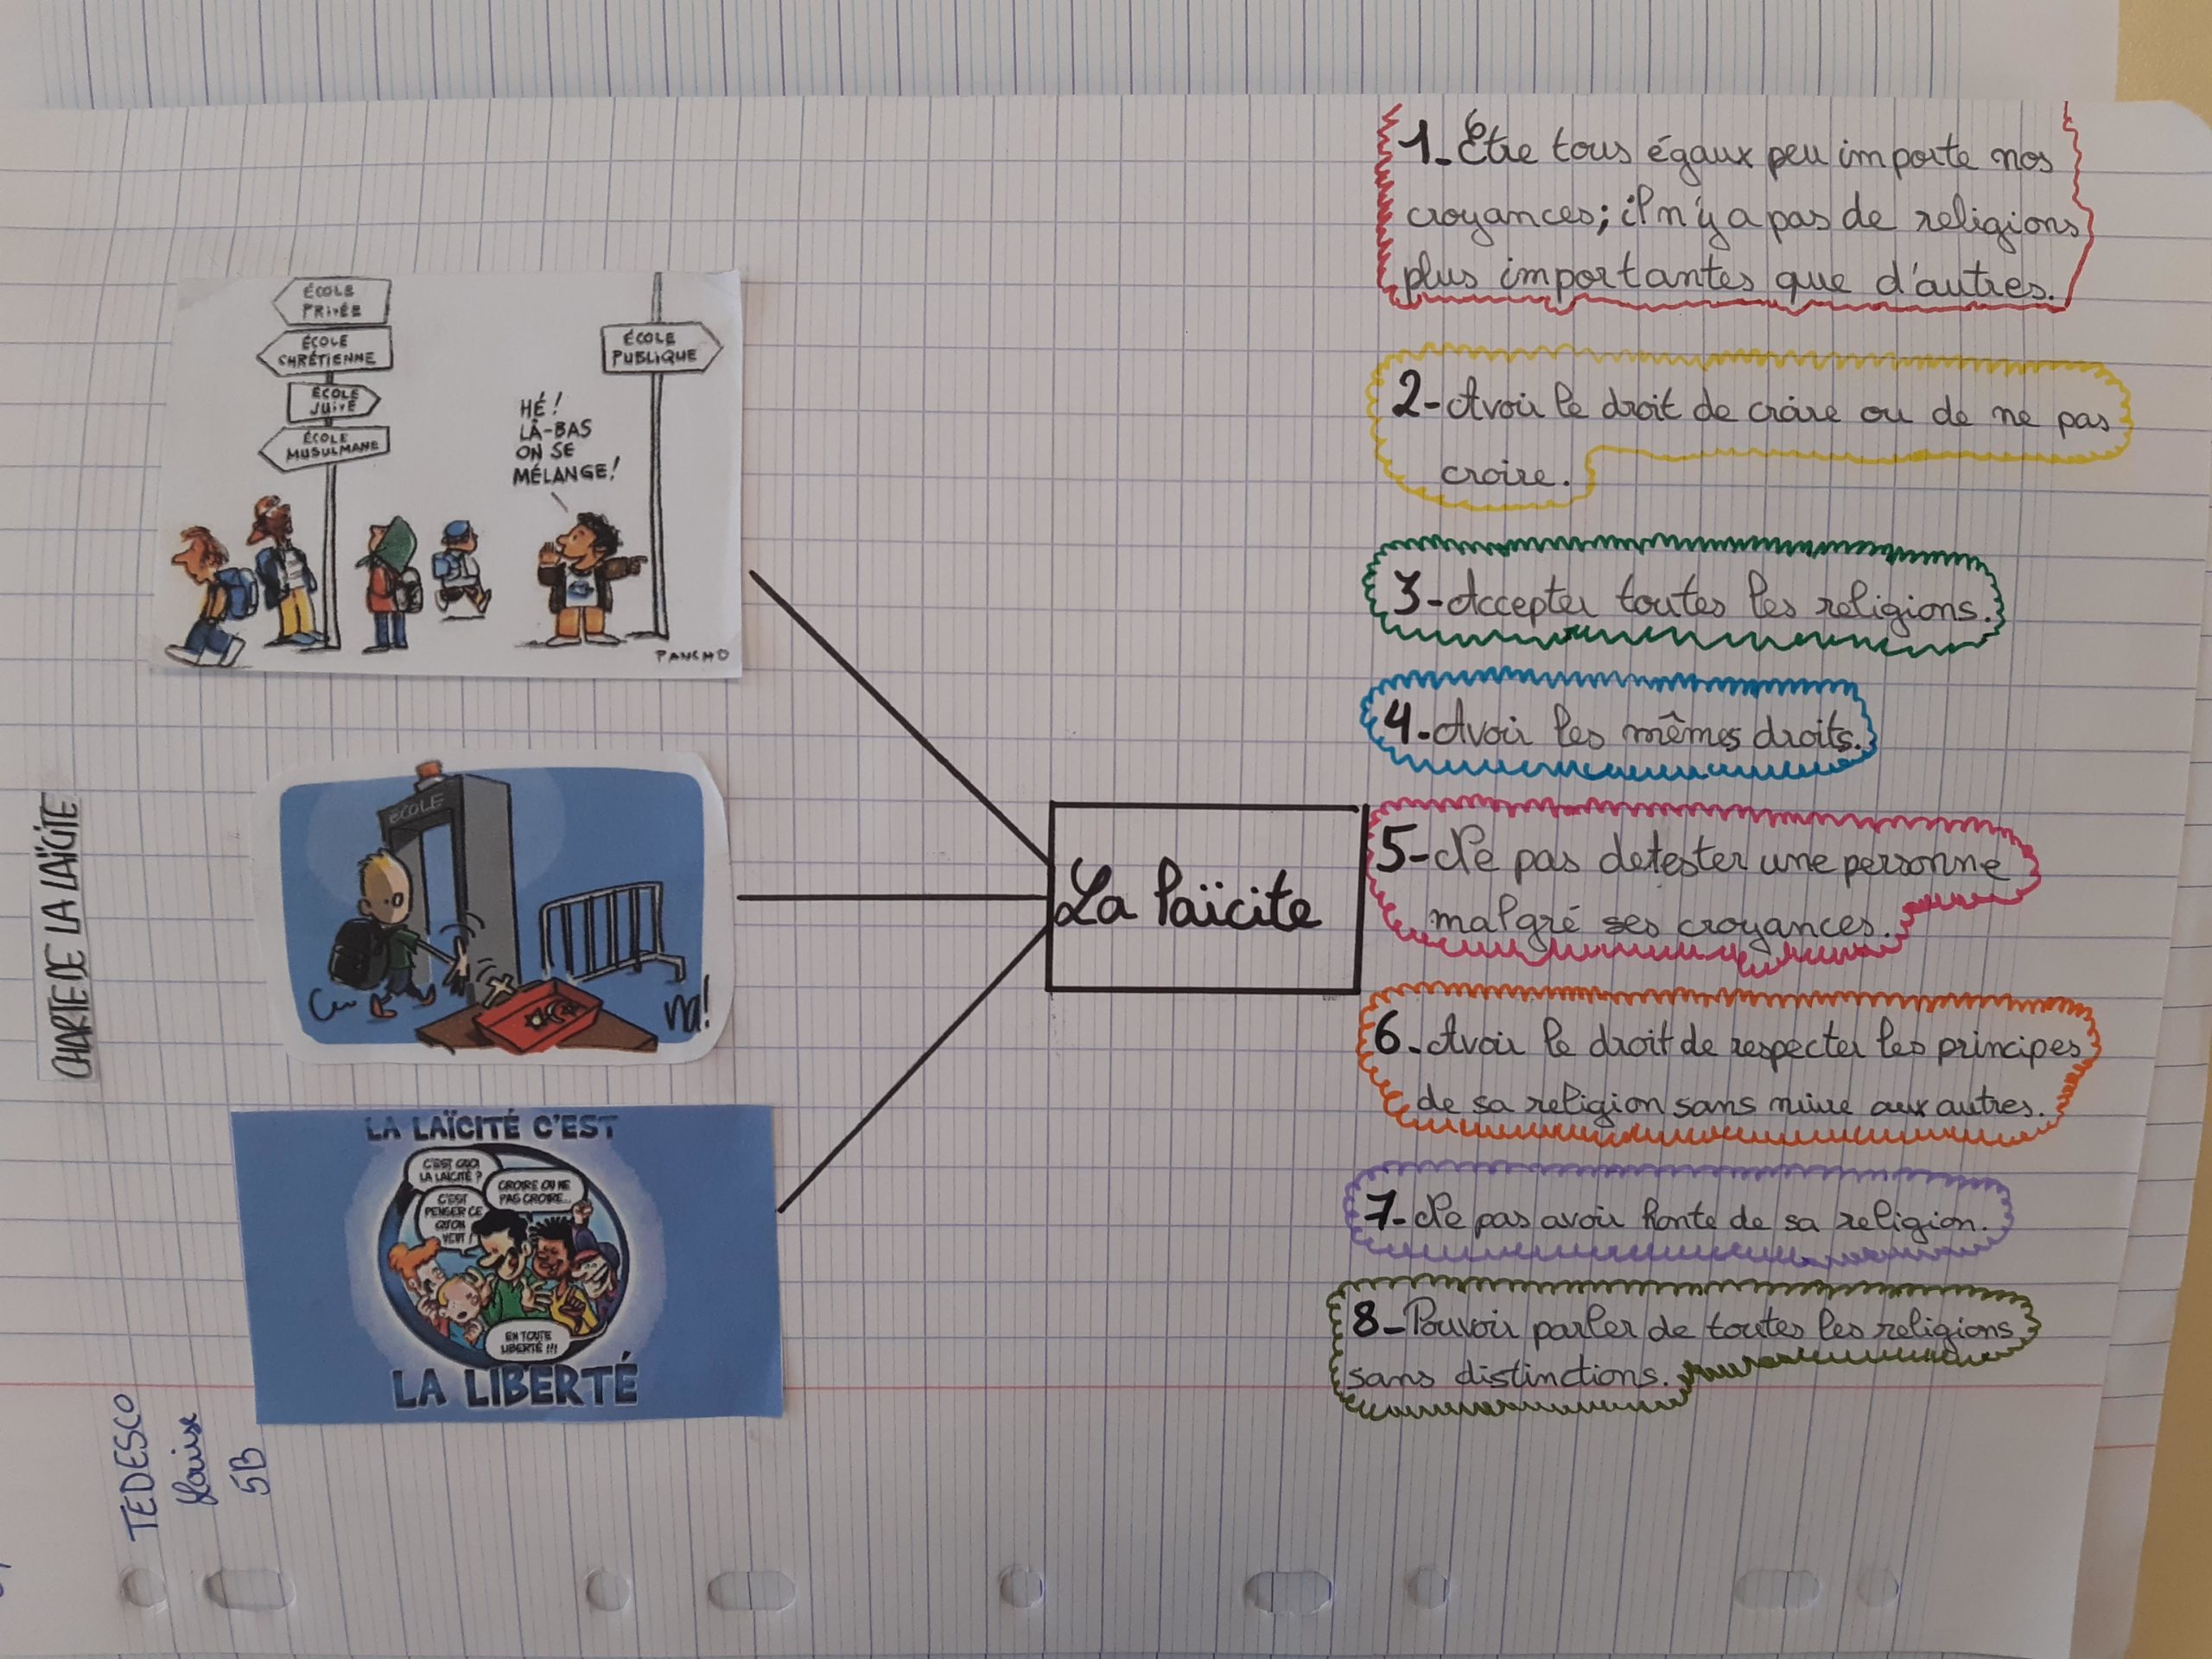 CHARTE DE LA LAÏCITE
TEDESCO
Louise
5B
ÉCOLE
PRIVÉE
ÉCOLE
CHRÉTIENNE
ÉCOLE
JUIVE
ÉCOLE
MUSULMANE
HÉ!
LÀ-BAS
ON SE
MÉLANGE!
ÉCOLE
PUBLIQUE
PANCHO
ECOLE
LA LAÏCITÉ C'EST
C'EST QUOI
LA LAÏCITÉ ?
C'EST
PENSER CE
QU'ON
VEUT !
CROIRE OU NE
PAS CROIRE...
EN TOUTE
LIBERTÉ !!!
LA LIBERTÉ
La laïcite
1-Etre tous égaux peu importe nos
croyances; il n'y a pas de religions
plus importantes que d'autres.
2-Avoir le droit de croire ou de ne pas
croire.
3-Accepter toutes les religions.
4-Avoir les mêmes droits.
5-Ne pas detester une personne
malgré ses croyances.
6-Avoir le droit de respecter les principes
de sa religion sans nuire aux autres.
7-Ne pas avoir honte de sa religion.
8-Pouvoir parler de toutes les religions
sans distinctions.